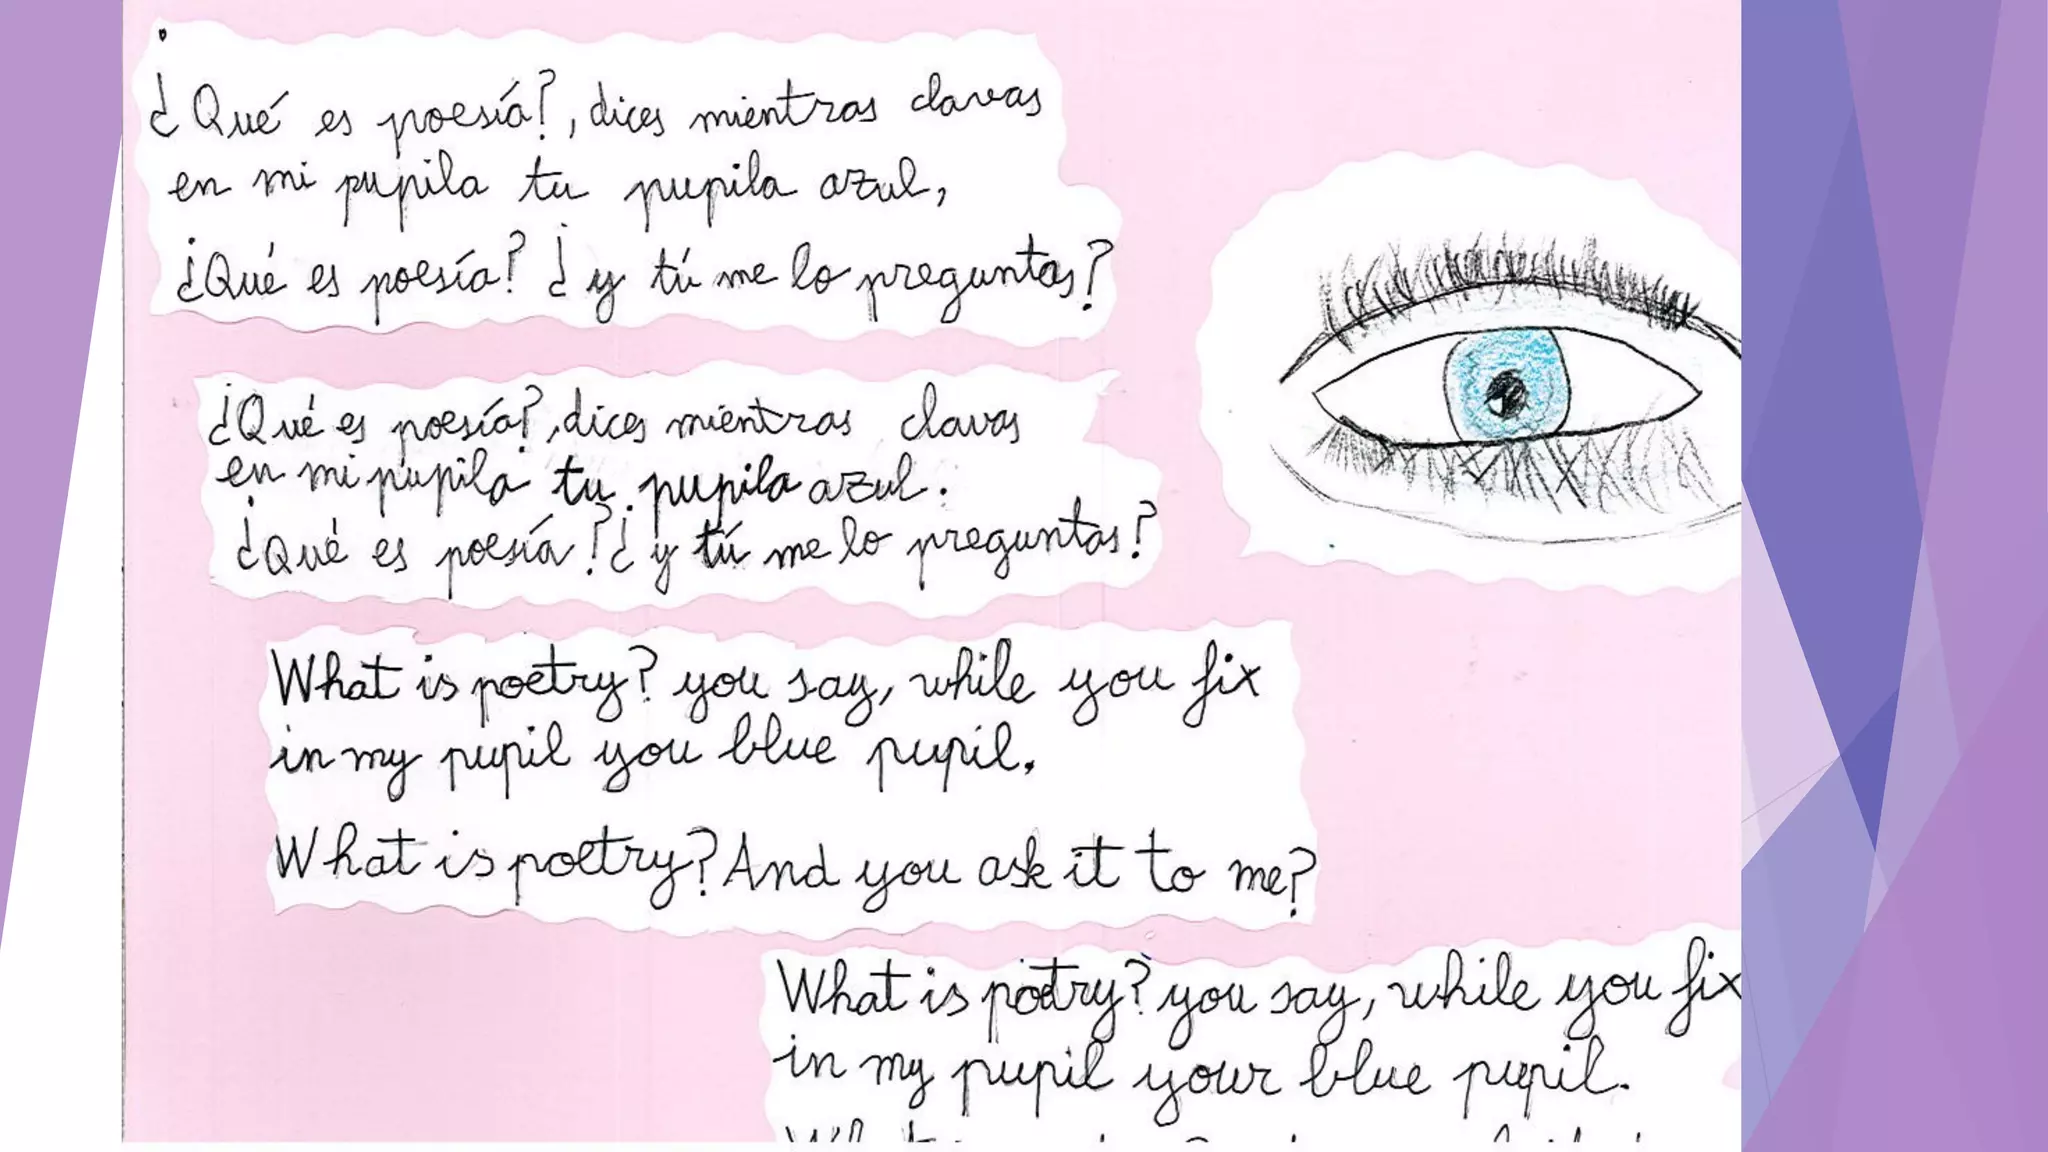 ¿Qué es poesía?, dices mientras clavas
en mi pupila tu pupila azul,
¿Qué es poesía? ¿y tú me lo preguntas?
¿Qué es poesía?, dices mientras clavas
en mi pupila tu pupila azul.
¿Qué es poesía? ¿y tú me lo preguntas?
What is poetry? you say, while you fix
in my pupil you blue pupil.
What is poetry? And you ask it to me?
What is poetry? you say, while you fix
in my pupil your blue pupil.